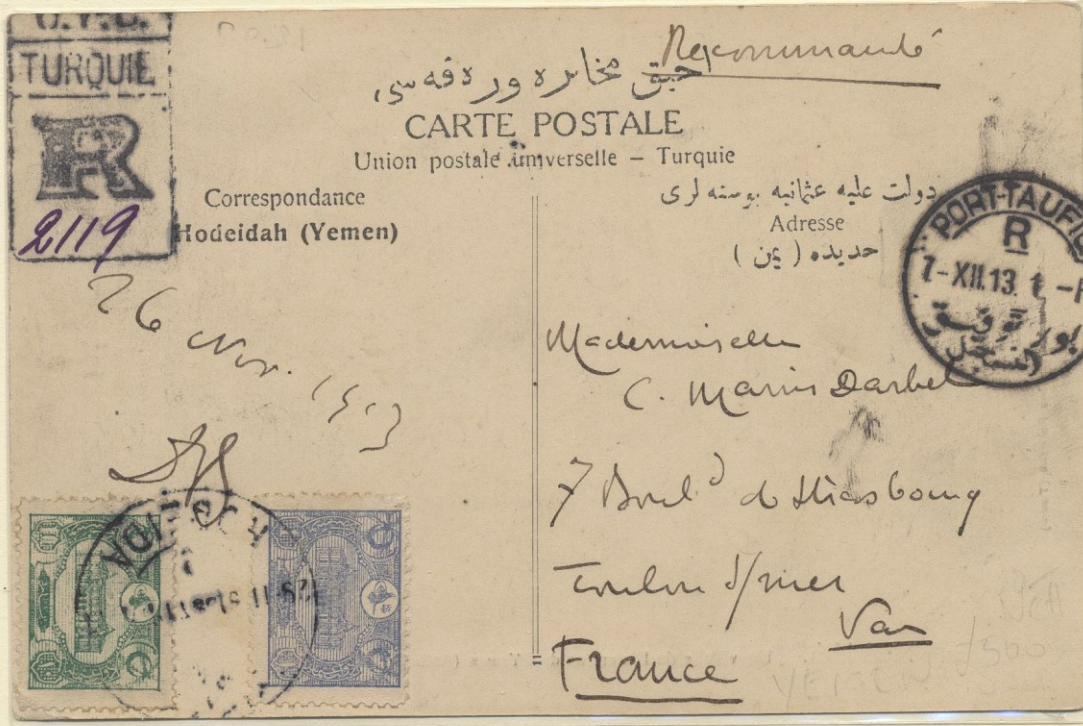 U.P.U.
TURQUIE
R
2119
Recommandé
CARTE POSTALE
Union postale universelle – Turquie
Correspondance
Hodeidah (Yemen)
دولت عليه عثمانيه پوسته لری
Adresse
حديده ( يمن )
26 Nov. 1913
PORT-TAUFIQ
R
7-XII.13. 1 -P
بور توفيق
المسجل
Mademoiselle
C. Marius Darbel
7 Boulᵈ de Strasbourg
Toulon s/mer
Var
France
HODEIDA
YEMEN